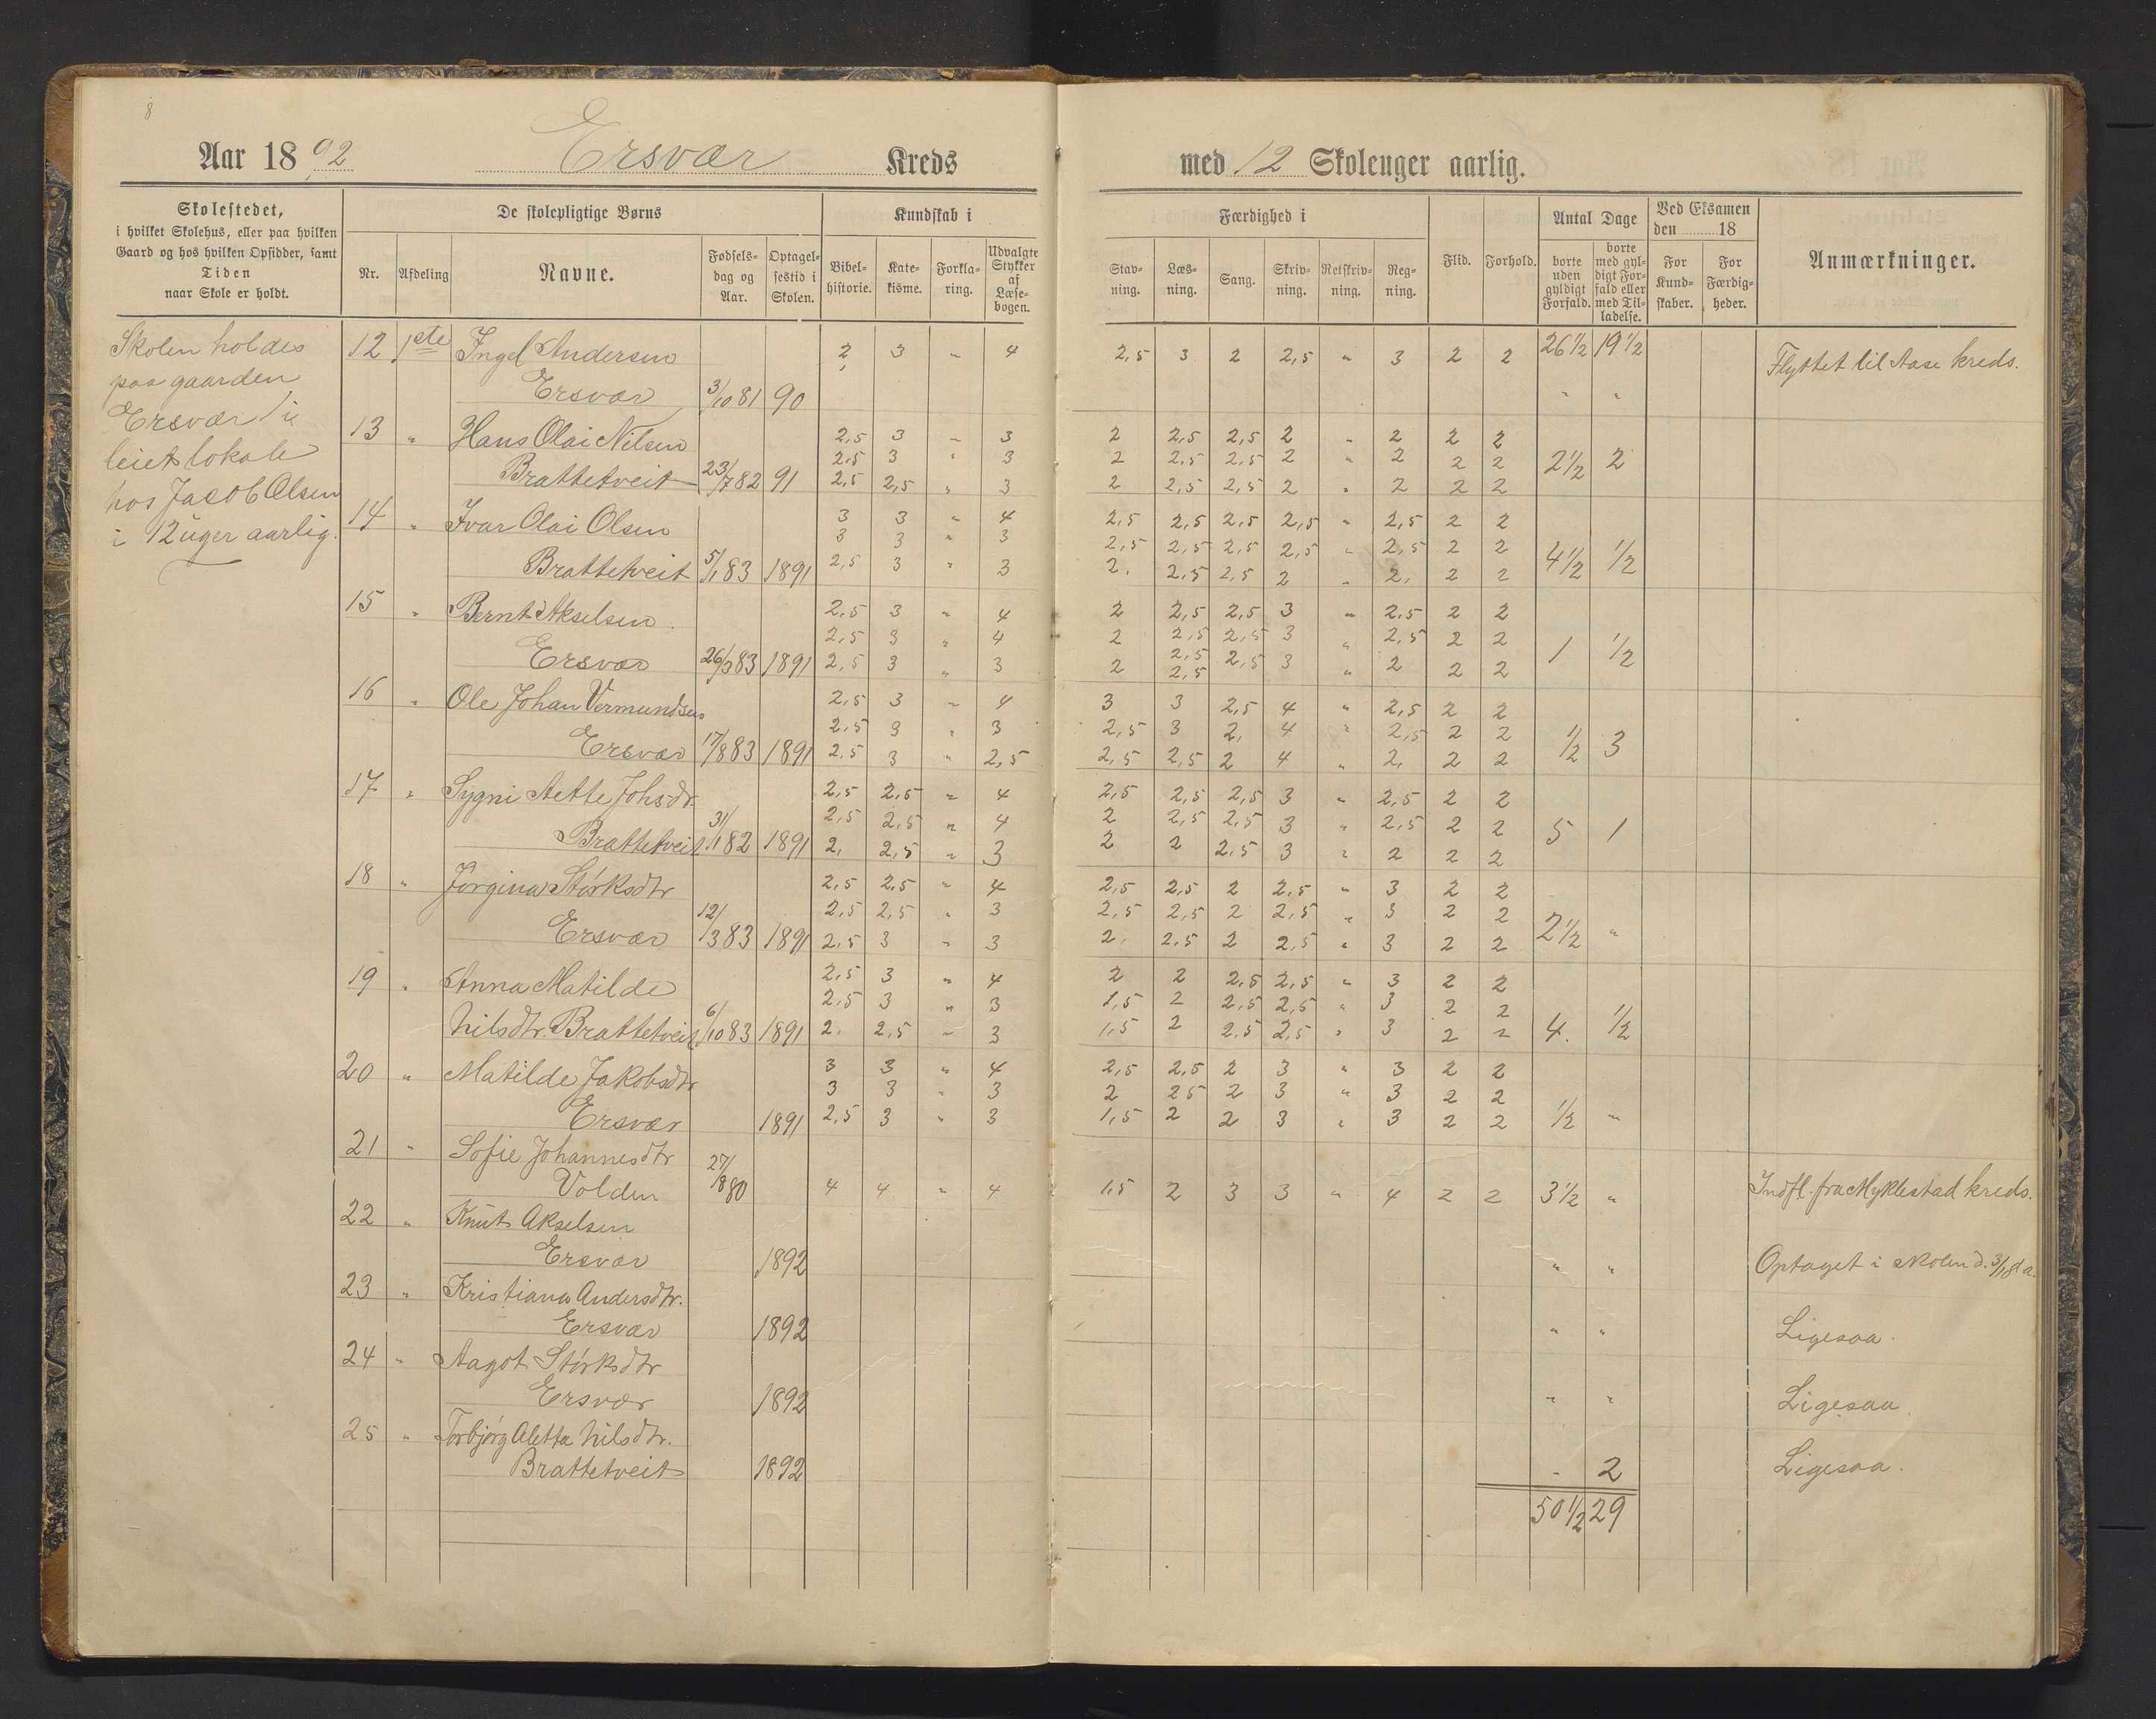 8
Aar 1892 Ersvær Kreds med 12 Skolenger aarlig.
Skolestedet,
i hvilket Skolehus, eller paa hvilken
Gaard og hos hvilken Opsidder, samt
Tiden
naar Skole er holdt.
De skolepligtige Børns
Nr. Afdeling Navne. Fødsels-dag og Aar. Optagel-sestid i Skolen.
Kundskab i
Bibel-historie. Kate-kisme. Forkla-ring. Udvalgte Stykker af Læse-bogen.
Færdighed i
Stav-ning. Læs-ning. Sang. Skriv-ning. Retskriv-ning. Reg-ning.
Flid. Forhold.
Antal Dage
borte uden gyldigt Forfald. borte med gyl-digt For-fald eller med Til-ladelse.
Ved Eksamen
den 18
For Kund-skaber. For Færdig-heder.
Anmærkninger.
Skolen holdes
paa gaarden
Ersvær i
leiet lokale
hos Jacob Olsen
i 12 uger aarlig.
12 1ste Ingel Andersen 2 3 " 4 2,5 3 2 2,5 " 3 2 2 26 1/2 19 1/2 Flyttet til Aase kreds.
Ersvær 3/10 81 90 " "
13 " Hans Olai Nilsen 2,5 3 " 3 2 2,5 2,5 2 " 2 2 2
2,5 3 " 3 2 2,5 2,5 2 " 2 2 2
Brattetveit 23/7 82 91 2,5 2,5 " 3 2 2,5 2,5 2 " 2 2 2 2 1/2 2
14 " Ivar Olai Olsen 3 3 " 4 2,5 2,5 2,5 2,5 " 2,5 2 2
3 3 " 3 2,5 2,5 2,5 2,5 " 2,5 2 2
Brattetveit 5/1 83 1891 2,5 3 " 3 2. 2,5 2,5 2 " 2. 2 2 4 1/2 1/2
15 " Bernt Akselsen 2,5 3 " 4 2 2,5 2,5 3 " 2,5 2 2
2,5 3 " 4 2 2,5 2,5 3 " 2,5 2 2
2,5
Ersvær 1891 2,5 3 " 3 2 2,5 2,5 3 " 2 2 2 1 1/2
16 " Ole Johan Vermundsen 2,5 3 " 4 3 3 2,5 4 " 2,5 2 2
2,5 3 " 3 2,5 3 2, 4 " 2,5 2 2
Ersvær 17/8 83 1891 2,5 3 " 2,5 2,5 2,5 2 4 " 2, 2 2 1/2 3
17 " Sygni Aette Johsdr. 2,5 2,5 " 4 2,5 2,5 2,5 3 " 2,5 2 2
2,5 2,5 " 4 2 2,5 2,5 3 " 2,5 2 2
Brattetveit 31/1 82 1891 2, 2,5 " 3 2 2 2,5 3 " 2 2 2 5 1
18 " Jørgina Størksdtr 2,5 2,5 " 4 2,5 2,5 2 2,5 " 3 2 2
2,5 2,5 " 3 2,5 2,5 2 2,5 " 3 2 2
Ersvær 12/3 83 1891 2,5 3 " 3 2, 2,5 2 2,5 " 3 2 2 2 1/2 "
19 " Anna Matilde 2,5 3 " 4 2 2 2,5 2,5 " 3 2 2
2,5 3 " 3 1,5 2 2,5 2,5 " 3 2 2
Nilsdtr. Brattetveit 6/10 83 1891 2. 2,5 " 3 1,5 2 2,5 2,5 " 3 2 2 4. 1/2
20 " Matilde Jakobsdtr 3 3 " 4 2,5 2,5 2 3 " 3 2 2
3 3 " 3 2 25 2 3 " 3 2 2
Ersvær 1891 2,5 3 " 3 1,5 2 2 3 " 3 2 2 1/2 "
21 " Sofie Johannesdtr
Volden 27/8 80 4 4 " 4 1,5 2 3 3 " 4 2 2 3 1/2 " Indfl. fra Myklestad kreds.
22 " Knut Akselsen
Ersvær 1892 " " Optaget i skolen d.
23 " Kristiana Andersdtr.
Ersvær 1892 " " Ligesaa.
24 " Aagot Størksdtr
Ersvær 1892 " " Ligesaa.
25 " Torbjørg Aletta Nilsdtr.
Brattetveit 1892 " 2 Ligesaa.
50 1/2 29